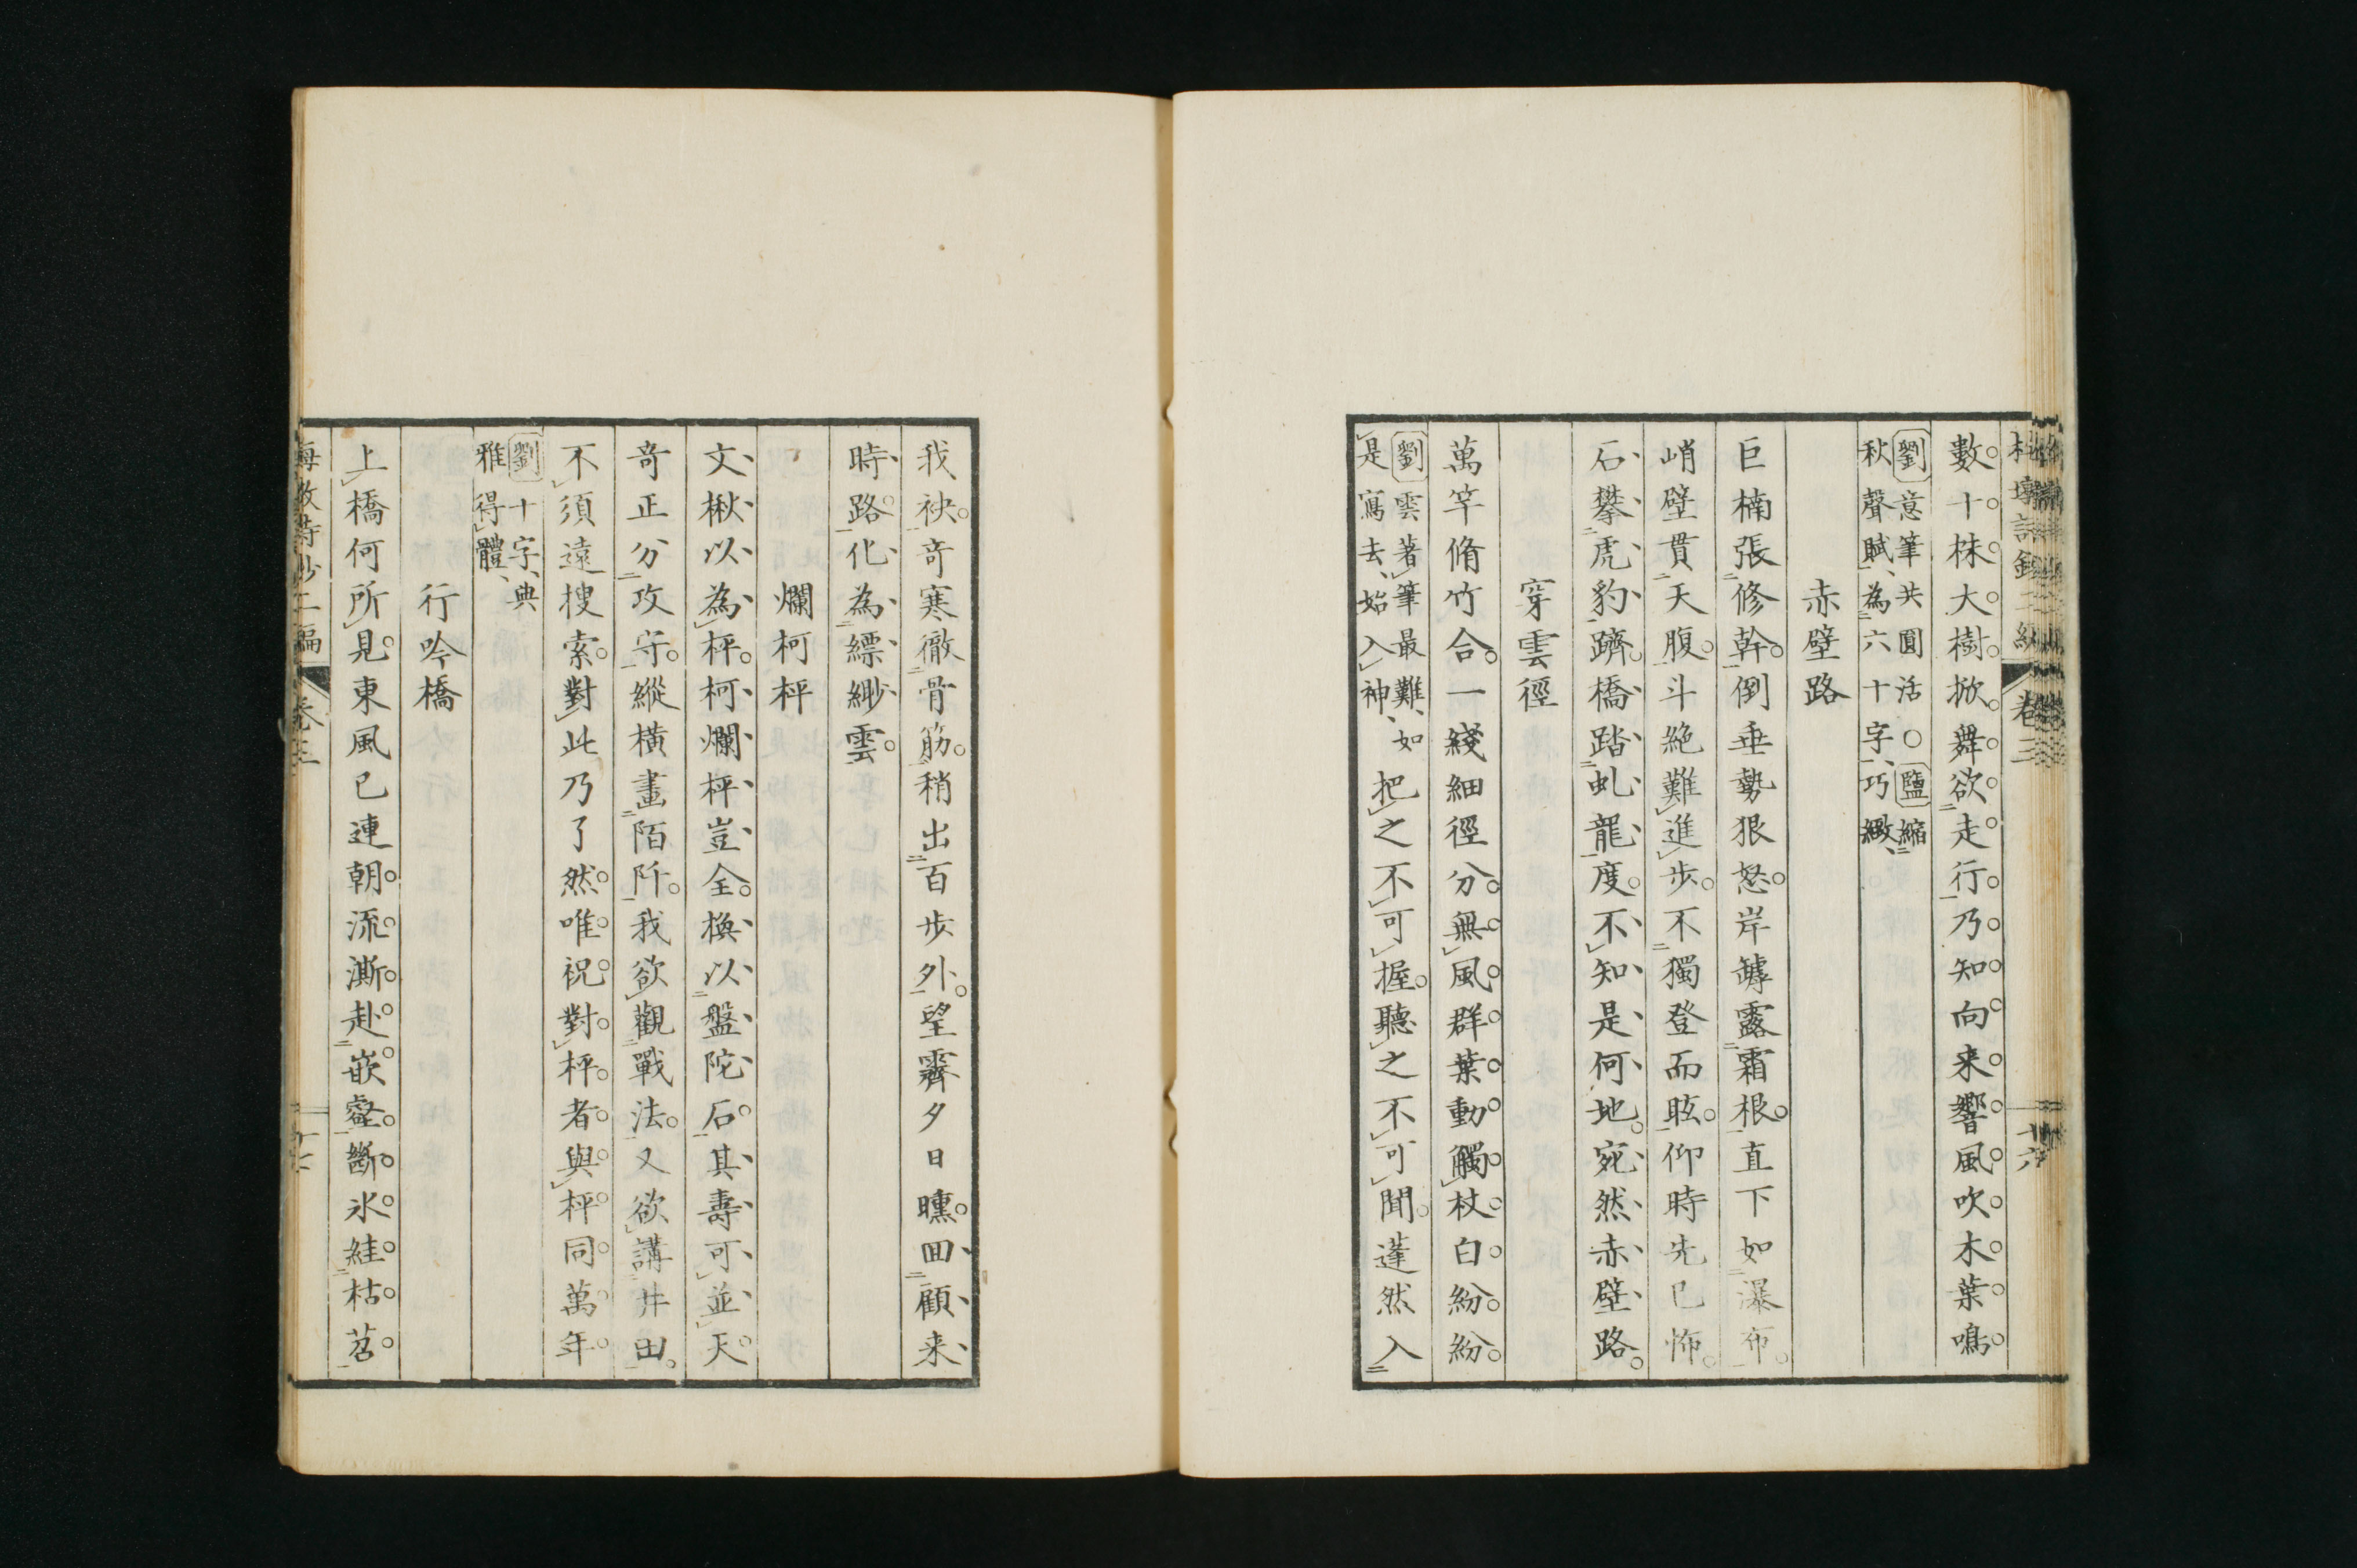 數十株大樹掀舞欲走行乃知向来響風吹木葉鳴
劉意筆共圓活○鹽縮
秋聲賦為六十字巧緻
赤壁路
巨楠張修幹倒垂勢狠怒岸罅露霜根直下如瀑布
峭壁貫天腹斗絶難進步不獨登而眩仰時先已怖
石攀虎豹躋橋踏虬龍度不知是何地宛然赤壁路
穿雲徑
萬竿脩竹合一綫細徑分無風群葉動觸杖白紛紛
劉雲著筆最難如
是寫去始入神
把之不可握聽之不可聞蓬然入
我袂奇寒徹骨筋稍出百步外望霽夕日曛回顧来
時路化為縹緲雲
爛柯枰
文楸以為枰柯爛枰豈全換以盤陀石其壽可並天
奇正分攻守縱横畫陌阡我欲觀戰法又欲講井田
不須遠搜索對此乃了然唯祝對枰者與枰同萬年
劉十字典
雅得體
行吟橋
上橋何所見東風已連朝流澌赴嵌壑斷氷絓枯苕
卷三